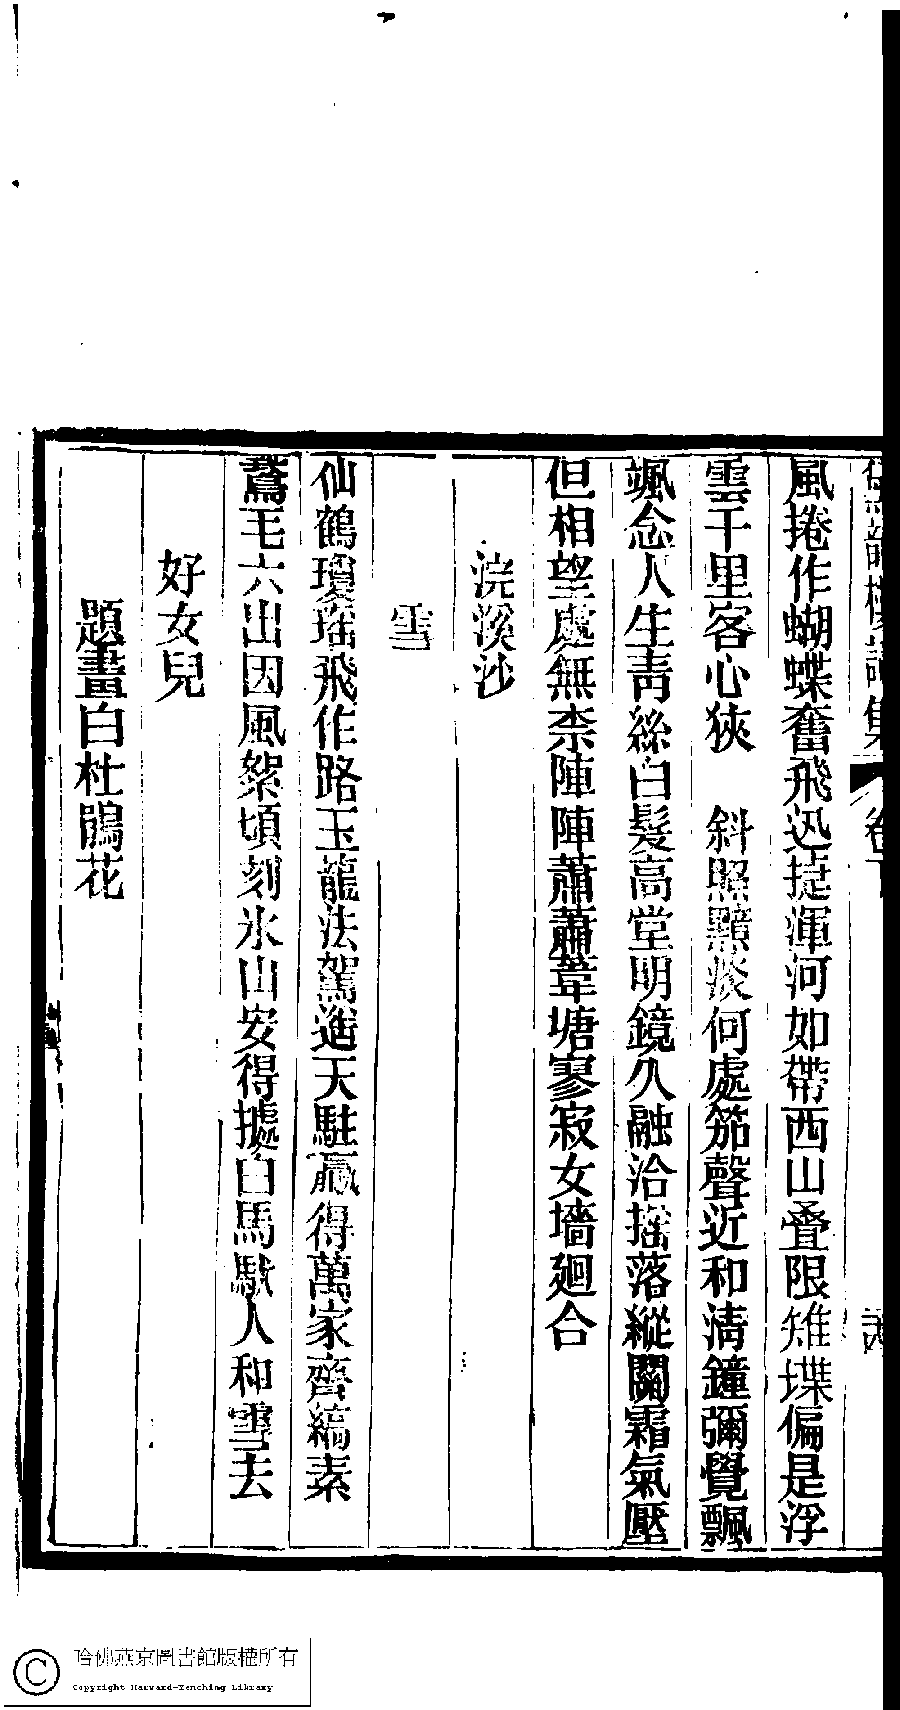 風捲作蝴蝶奮飛迅捷渾河如帶西山疊限雉堞偏是浮
雲千里客心狹　斜照黯淡何處笳聲近和清鐘彌覺飄
颯念人生靑絲白髮高堂明鏡久融洽搖落縱關霜氣壓
但相望處無柰陣陣蕭蕭葦塘寥寂女墻廻合
浣溪沙
雪
仙鶴瓊瑤飛作路玉龍法駕遙天駐贏得萬家齊縞素
鵞毛六出因風絮頃刻氷山安得據白馬馱人和雪去
好女兒
題畫白杜鵑花
哈佛燕京圖書館版權所有
Copyright Harvard-Yenching Library